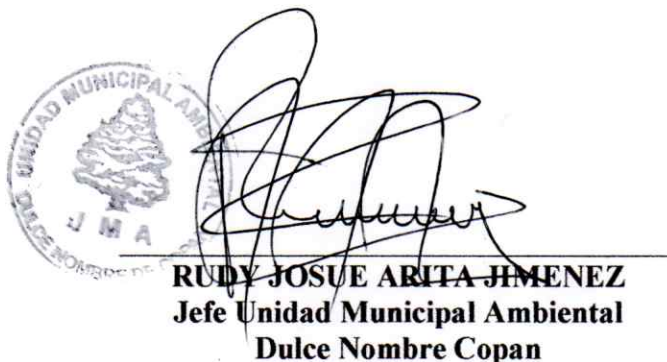 UNIDAD MUNICIPAL AMBIENTAL
JMA
DULCE NOMBRE DE COPAN
RUDY JOSUE ARITA JIMENEZ
Jefe Unidad Municipal Ambiental
Dulce Nombre Copan